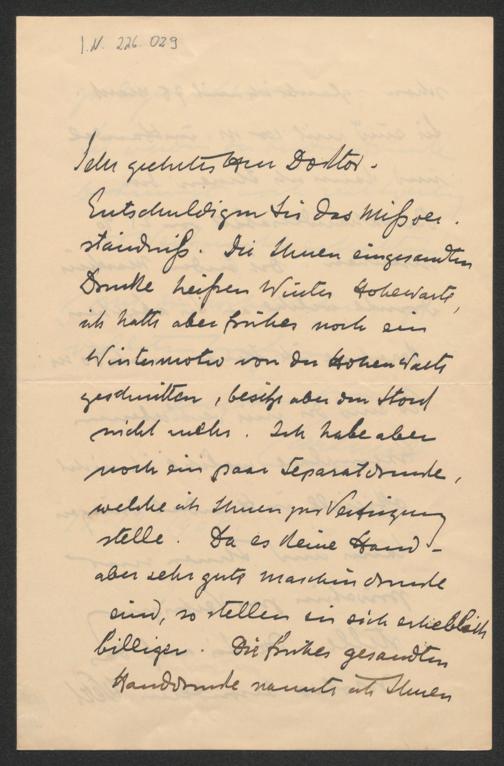 I.N. 226.029
Sehr geehrter Herr Doktor.
Entschuldigen Sie das Mißver-
ständniß. Die Ihnen eingesandten
Drucke heißen Winter Hohewarte,
ich hatte aber früher noch ein
Wintermotiv von der Hohen Warte
geschnitten, besitze aber den Stock
nicht mehr. Ich habe aber
noch ein paar Separatdrucke,
welche ich Ihnen zur Verfügung
stelle. Da es keine Hand-
aber sehr gute Maschindrucke
sind, so stellen sie sich erheblich
billiger. Die früher gesandten
Handdrucke nannte ich Ihnen